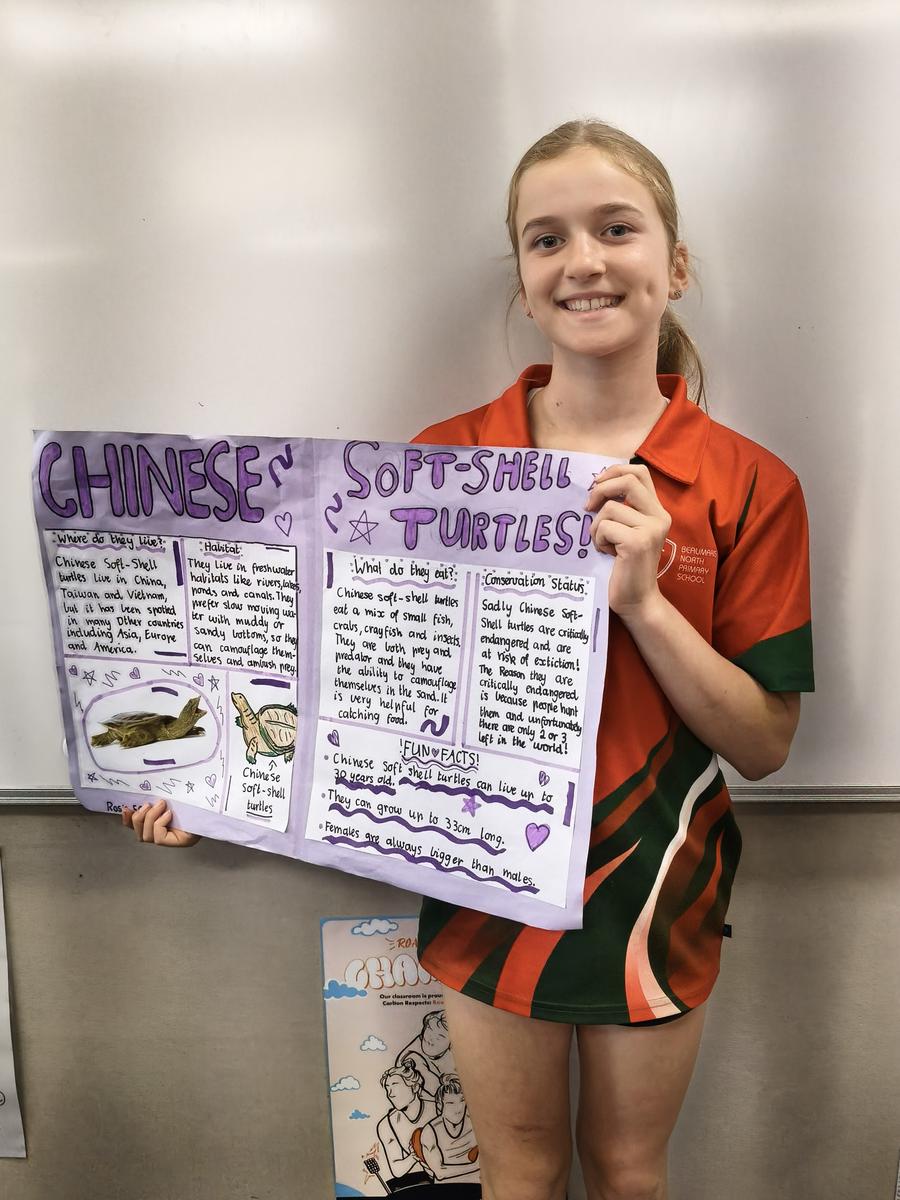 CHINESE
SOFT-SHELL
TURTLES!
Where do they live?
Chinese Soft-Shell
turtles live in China,
Taiwan and Vietnam,
but it has been spotted
in many Other countries
including Asia, Europe
and America.
Habitat
They live in freshwater
habitats like rivers, lakes,
ponds and canals. They
prefer slow moving wa-
ter with muddy or
sandy bottoms, so they
can camouflage them-
selves and ambush prey.
Chinese
Soft-shell
turtles
What do they eat?
Chinese soft-shell turtles
eat a mix of small fish,
crabs, crayfish and insects.
They are both prey and
predator and they have
the ability to camouflage
themselves in the sand. It
is very helpful for
catching food.
Conservation Status
Sadly Chinese Soft-
Shell turtles are critically
endangered and are
at risk of extiction!
The Reason they are
critically endangered
is because people hunt
them and unfortunately
there are only 2 or 3
left in the world!
!FUN FACTS!
Chinese soft shell turtles can live up to
30 years old.
They can grow up to 33cm long.
Females are always bigger than males.
BEAUMARIS
NORTH
PRIMARY
SCHOOL
Our classroom is prou
Carlton Respects: